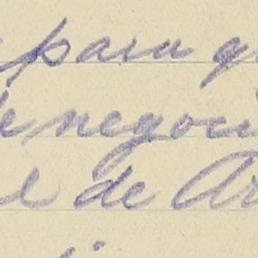 para q
de negoci
l de Ar